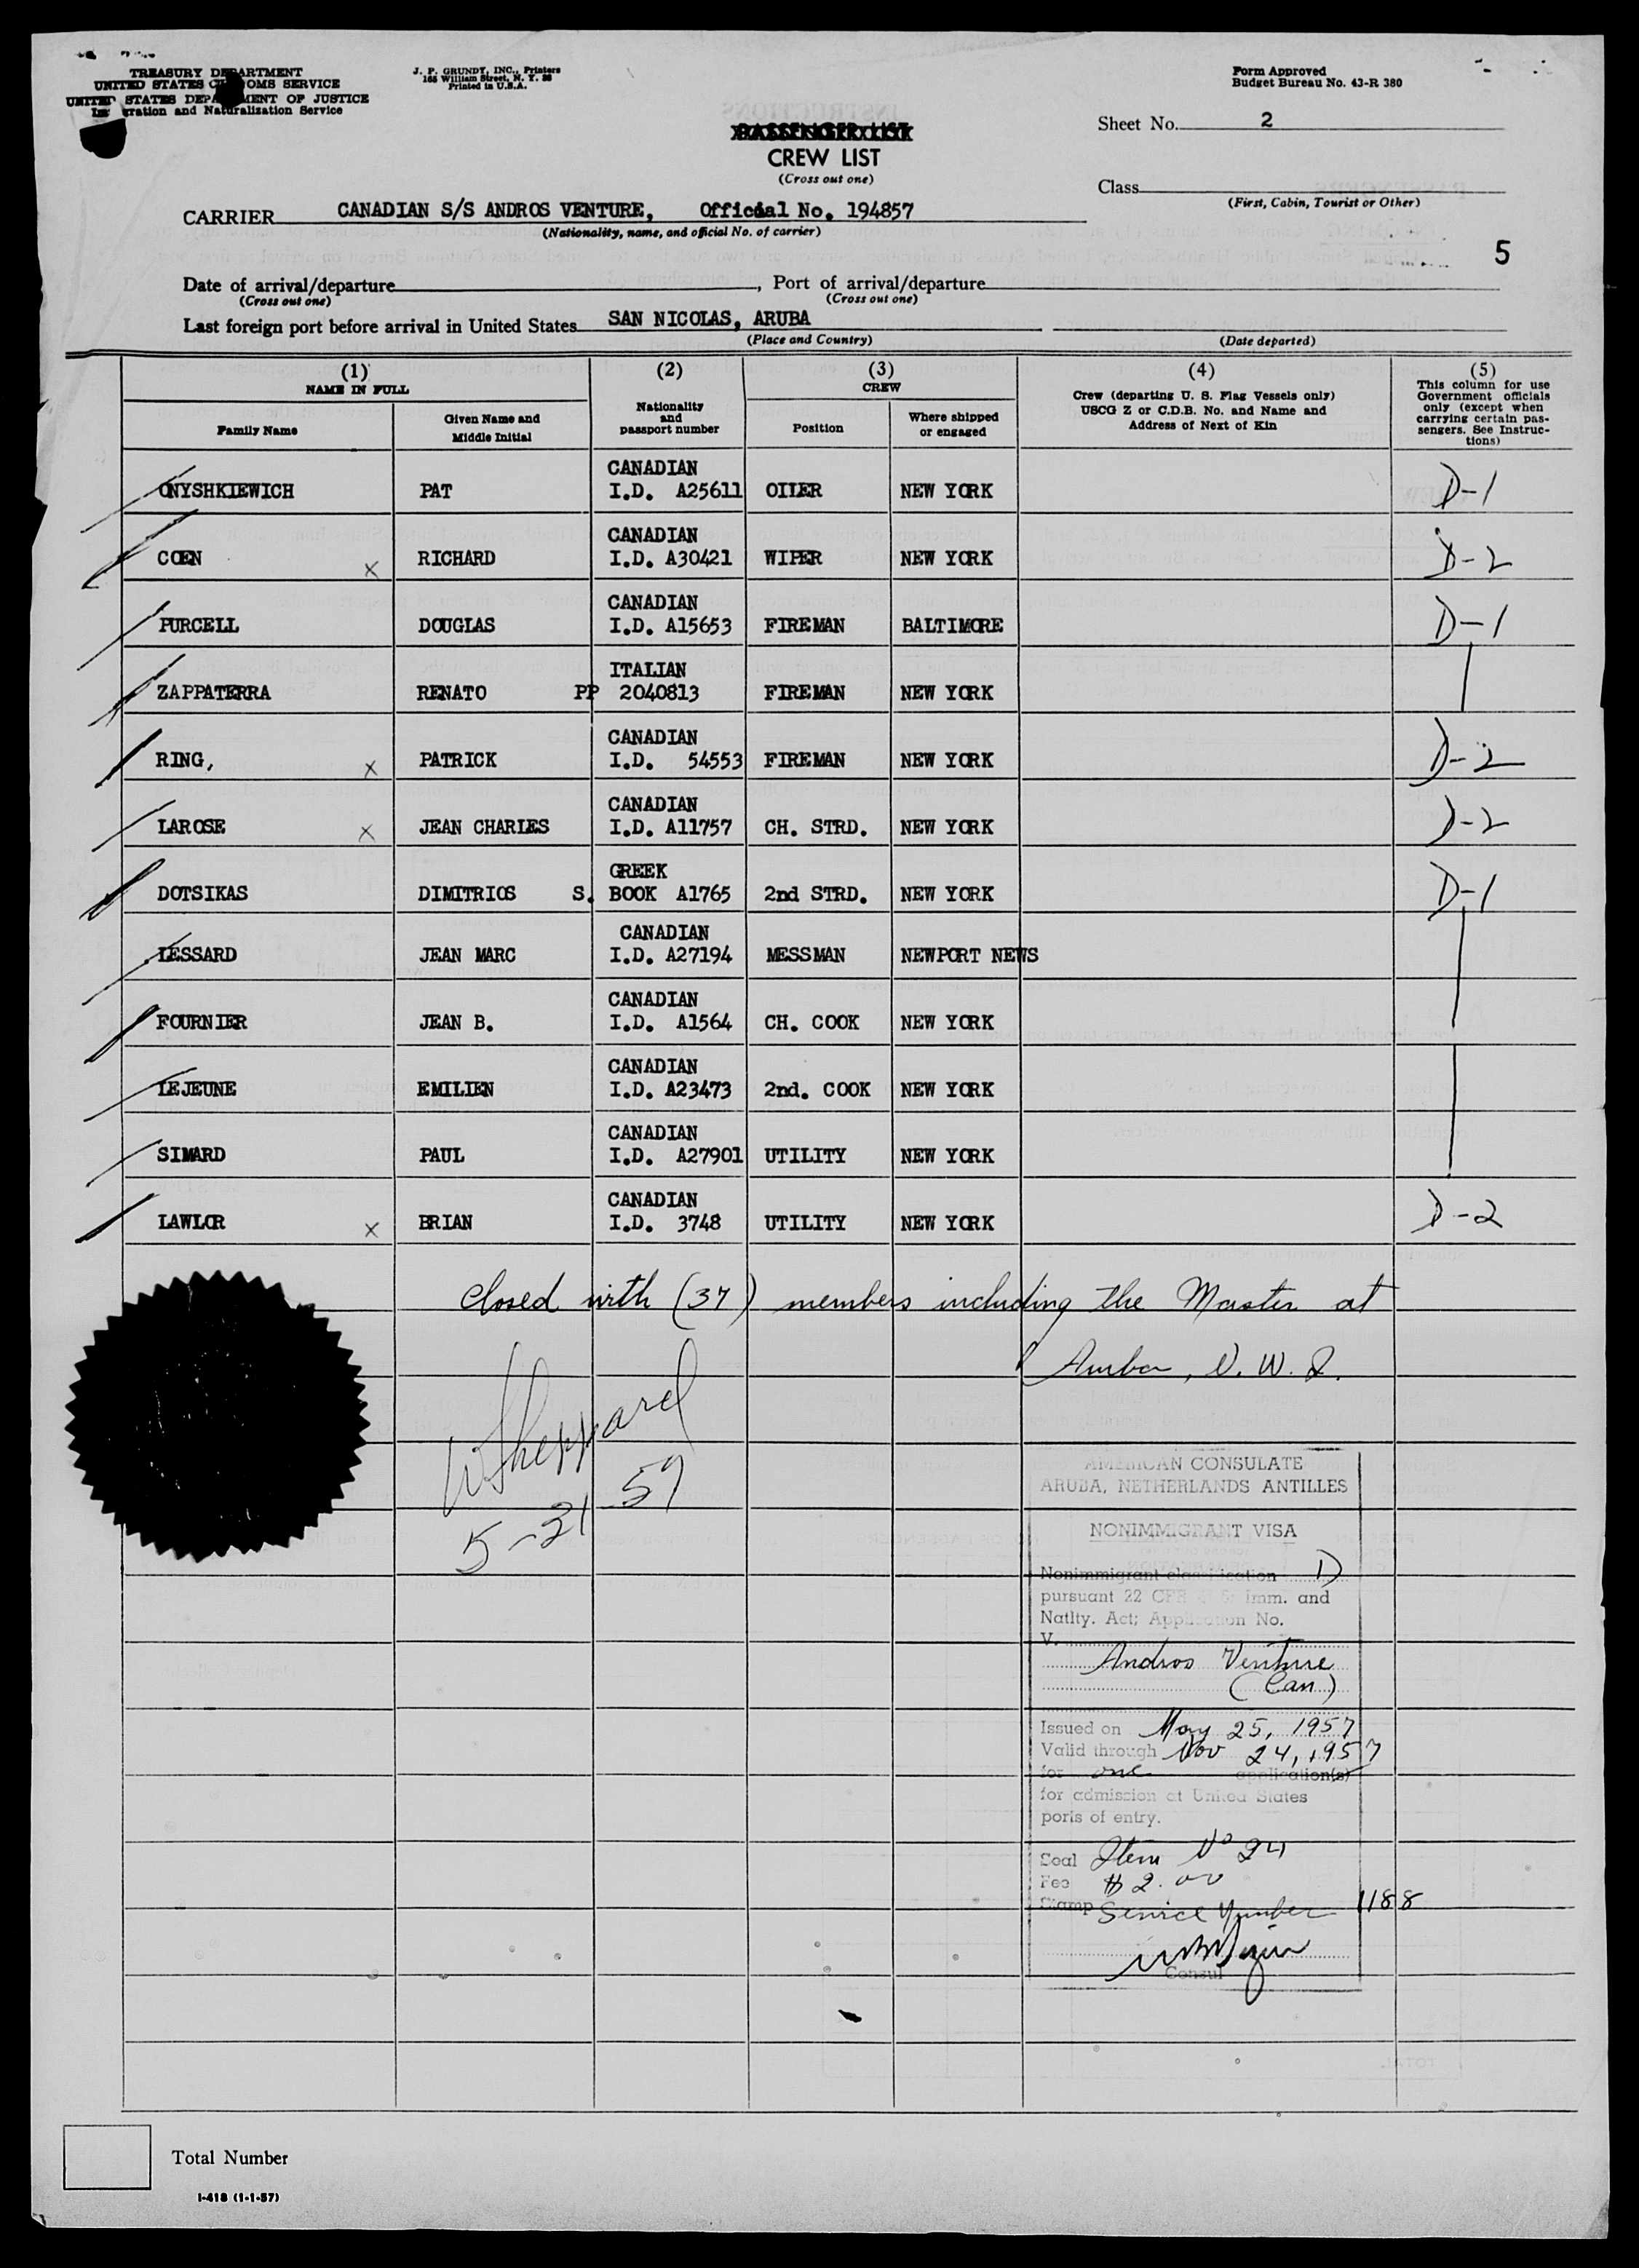 TREASURY DEPARTMENT
UNITED STATES CUSTOMS SERVICE
UNITED STATES DEPARTMENT OF JUSTICE
Immigration and Naturalization Service
J. P. GRUNDY, INC., Printers
165 William Street, N. Y. 38
Printed in U.S.A.
Form Approved
Budget Bureau No. 43-R 380
PASSENGER LIST
CREW LIST
(Cross out one)
Sheet No. 2
Class
(First, Cabin, Tourist or Other)
CARRIER CANADIAN S/S ANDROS VENTURE, Official No. 194857
(Nationality, name, and official No. of carrier)
5
Date of arrival/departure , Port of arrival/departure
(Cross out one) (Cross out one)
Last foreign port before arrival in United States SAN NICOLAS, ARUBA
(Place and Country) (Date departed)
(1) (2) (3) (4) (5)
NAME IN FULL
Family Name
Given Name and Middle Initial
Nationality and passport number
CREW
Position
Where shipped or engaged
Crew (departing U. S. Flag Vessels only)
USCG Z or C.D.B. No. and Name and
Address of Next of Kin
This column for use
Government officials
only (except when
carrying certain pas-
sengers. See Instruc-
tions)
CANADIAN
ONYSHKIEWICH PAT I.D. A25611 OILER NEW YORK D-1
CANADIAN
COEN x RICHARD I.D. A30421 WIPER NEW YORK D-2
CANADIAN
PURCELL DOUGLAS I.D. A15653 FIREMAN BALTIMORE D-1
ITALIAN
ZAPPATERRA RENATO PP 2040813 FIREMAN NEW YORK
CANADIAN
RING, x PATRICK I.D. 54553 FIREMAN NEW YORK D-2
CANADIAN
LAROSE x JEAN CHARLES I.D. A11757 CH. STRD. NEW YORK D-2
GREEK
DOTSIKAS DIMITRIOS S. BOOK A1765 2nd STRD. NEW YORK D-1
CANADIAN
LESSARD JEAN MARC I.D. A27194 MESSMAN NEWPORT NEWS
CANADIAN
FOURNIER JEAN B. I.D. A1564 CH. COOK NEW YORK
CANADIAN
LEJEUNE EMILIEN I.D. A23473 2nd. COOK NEW YORK
CANADIAN
SIMARD PAUL I.D. A27901 UTILITY NEW YORK
CANADIAN
LAWLOR x BRIAN I.D. 3748 UTILITY NEW YORK D-2
Closed with (37) members including the Master at
Aruba, N. W. I.
WSheppard
5-31 57
AMERICAN CONSULATE
ARUBA, NETHERLANDS ANTILLES
NONIMMIGRANT VISA
Nonimmigrant classification D
pursuant 22 CFR Imm. and
Natlty. Act; Application No.
V.
Andros Venture
(Can)
Issued on May 25, 1957
Valid through Nov 24, 1957
for one application(s)
for admission at United States
ports of entry.
Seal Item No 24
Fee $2.00
Stamp Service Number 1188
Consul
Total Number
I-418 (1-1-57)